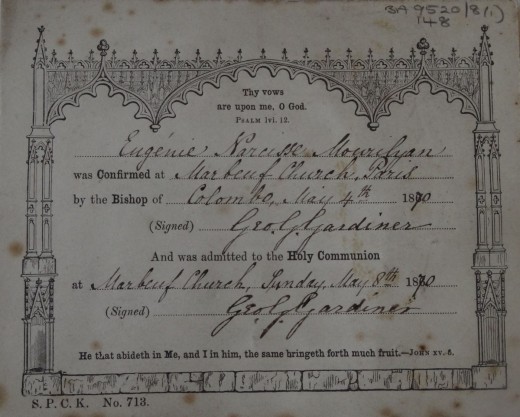 BA 9520/8(1)
148
Thy vows
are upon me, O God.
PSALM lvi. 12.
Eugénie Narcisse Mourilyan
was Confirmed at Marbeuf Church, Paris
by the Bishop of Colombo, May 4th 1870
(Signed) Geo. G. Gardiner
And was admitted to the Holy Communion
at Marbeuf Church, Sunday, May 8th 1870
(Signed) Geo. G. Gardiner
He that abideth in Me, and I in him, the same bringeth forth much fruit.—JOHN xv. 5.
S. P. C. K. No. 713.